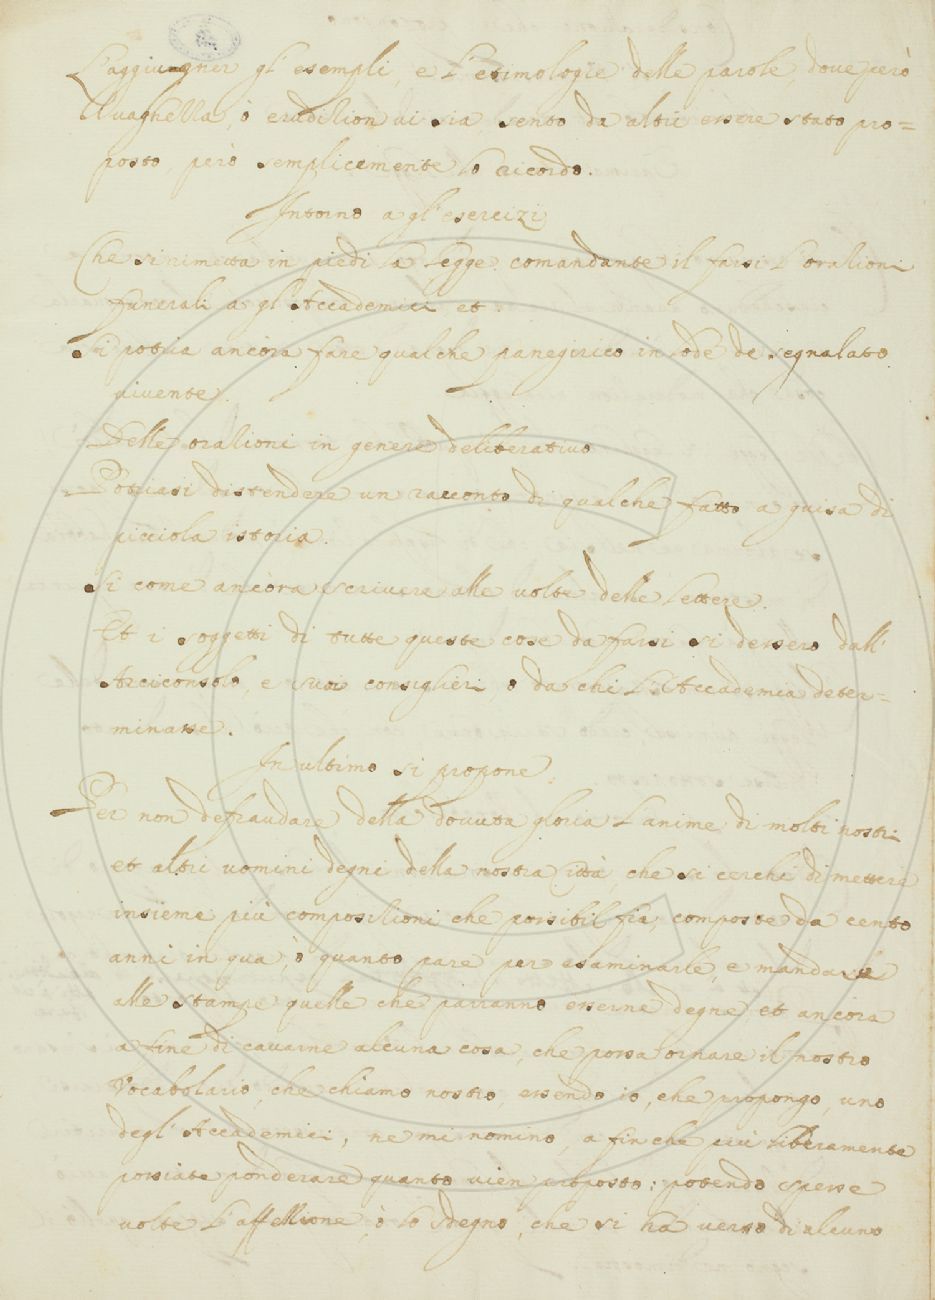 L'aggiugner gl'esempli, e l'etimologie delle parole, dove però
vaghezza, ò erudizion vi sia, sento da altri essere stato pro=
posto, però semplicemente lo ricordo.
Intorno a gl'esercizi
Che si rimetta in piedi la legge comandante il farsi l'orazioni
funerali a gl'Accademici et
Si potria ancora fare qualche panegirico in lode de segnalato
vivente.
Delle orazioni in genere deliberativo
Potriasi distendere un racconto di qualche fatto a guisa di
picciola istoria.
Si come ancora scrivere alle volte delle lettere.
Et i soggetti di tutte queste cose da farsi si dessero dall'
Arciconsolo, e suoi consiglieri, o da chi l'Accademia deter=
minasse.
In ultimo si propone.
Per non defraudare della dovuta gloria l'anime di molti nostri
et altri uomini degni della nostra Città, che si cerchi di mettere
insieme più composizioni che possibil fia, composte da cento
anni in qua, ò quanto pare per esaminarle, e mandarle
alle stampe quelle che parranno esserne degne, et ancora
a fine di cavarne alcuna cosa, che possa ornare il nostro
Vocabolario, che chiamo nostro, essendo io, che propongo, uno
degl'Accademici, ne mi nomino, a fin che più liberamente
possiate ponderare quanto vien proposto: potendo spesse
volte l'affezzione, ò lo sdegno, che si ha verso di alcuno